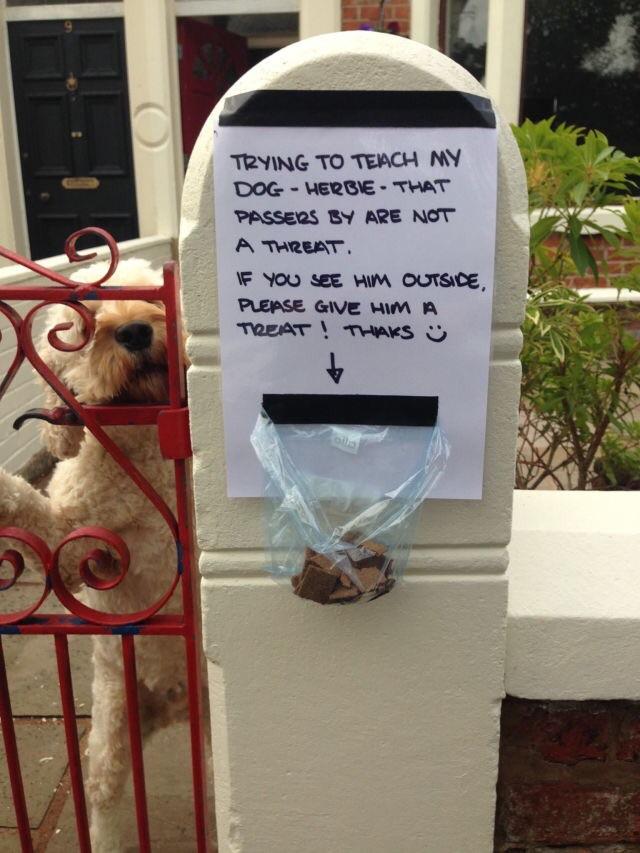 9
TRYING TO TEACH MY
DOG - HERBIE - THAT
PASSERS BY ARE NOT
A THREAT.
IF YOU SEE HIM OUTSIDE,
PLEASE GIVE HIM A
TREAT! THAKS